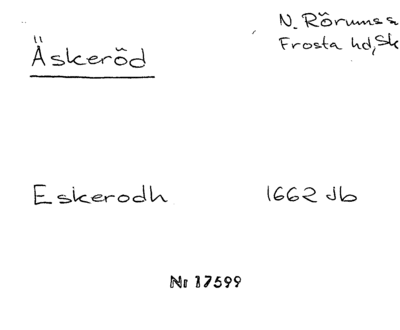 Äskeröd
N. Rörums s
Frosta hd, Sk
Eskerodh 1662 Jb
Nr 17599